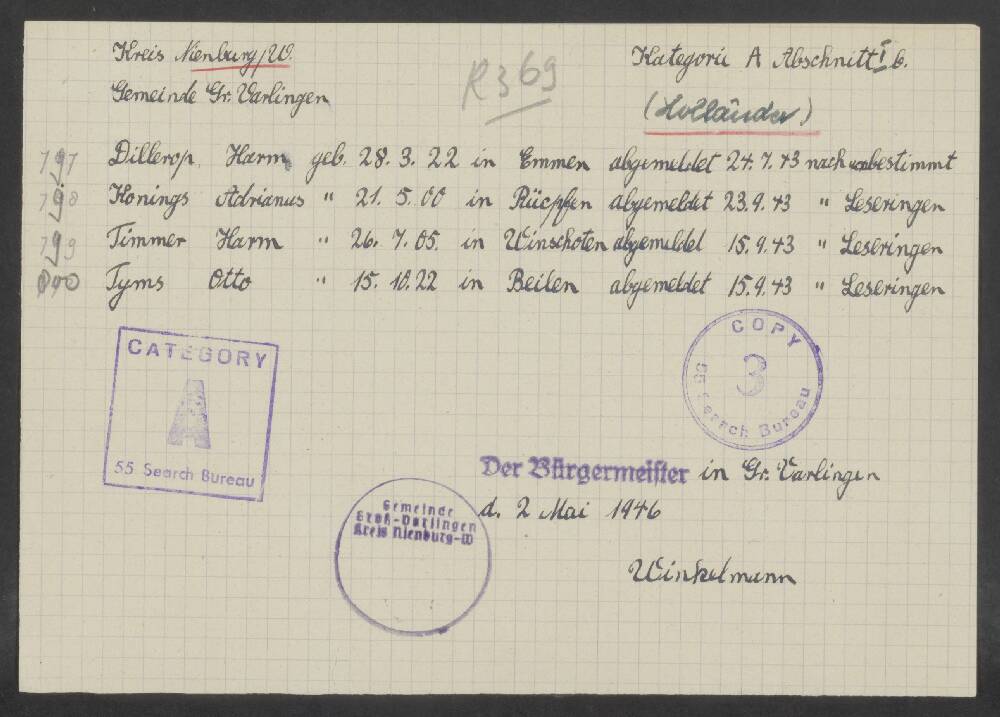 Kreis Nienburg/W.
Kategorie A Abschnitt I b.
R 369
Gemeinde Gr. Varlingen
(Holländer)
797 Dillerop Harm geb. 28. 3. 22 in Emmen abgemeldet 24. 7. 43 nach unbestimmt
798 Honings Adrianus " 21. 5. 00 in abgemeldet 23.9.43 " Leseringen
799 Timmer Harm " 26. 7. 05. in Winschoten abgemeldet 15.9.43 " Leseringen
800 Tyms Otto " 15. 10. 22 in Beilen abgemeldet 15.9.43 " Leseringen
CATEGORY
A
55 Search Bureau
COPY
3
55 Search Bureau
Der Bürgermeister in Gr. Varlingen
d. 2 Mai 1946
Gemeinde
Groß-Varlingen
Kreis Nienburg-W
Winkelmann